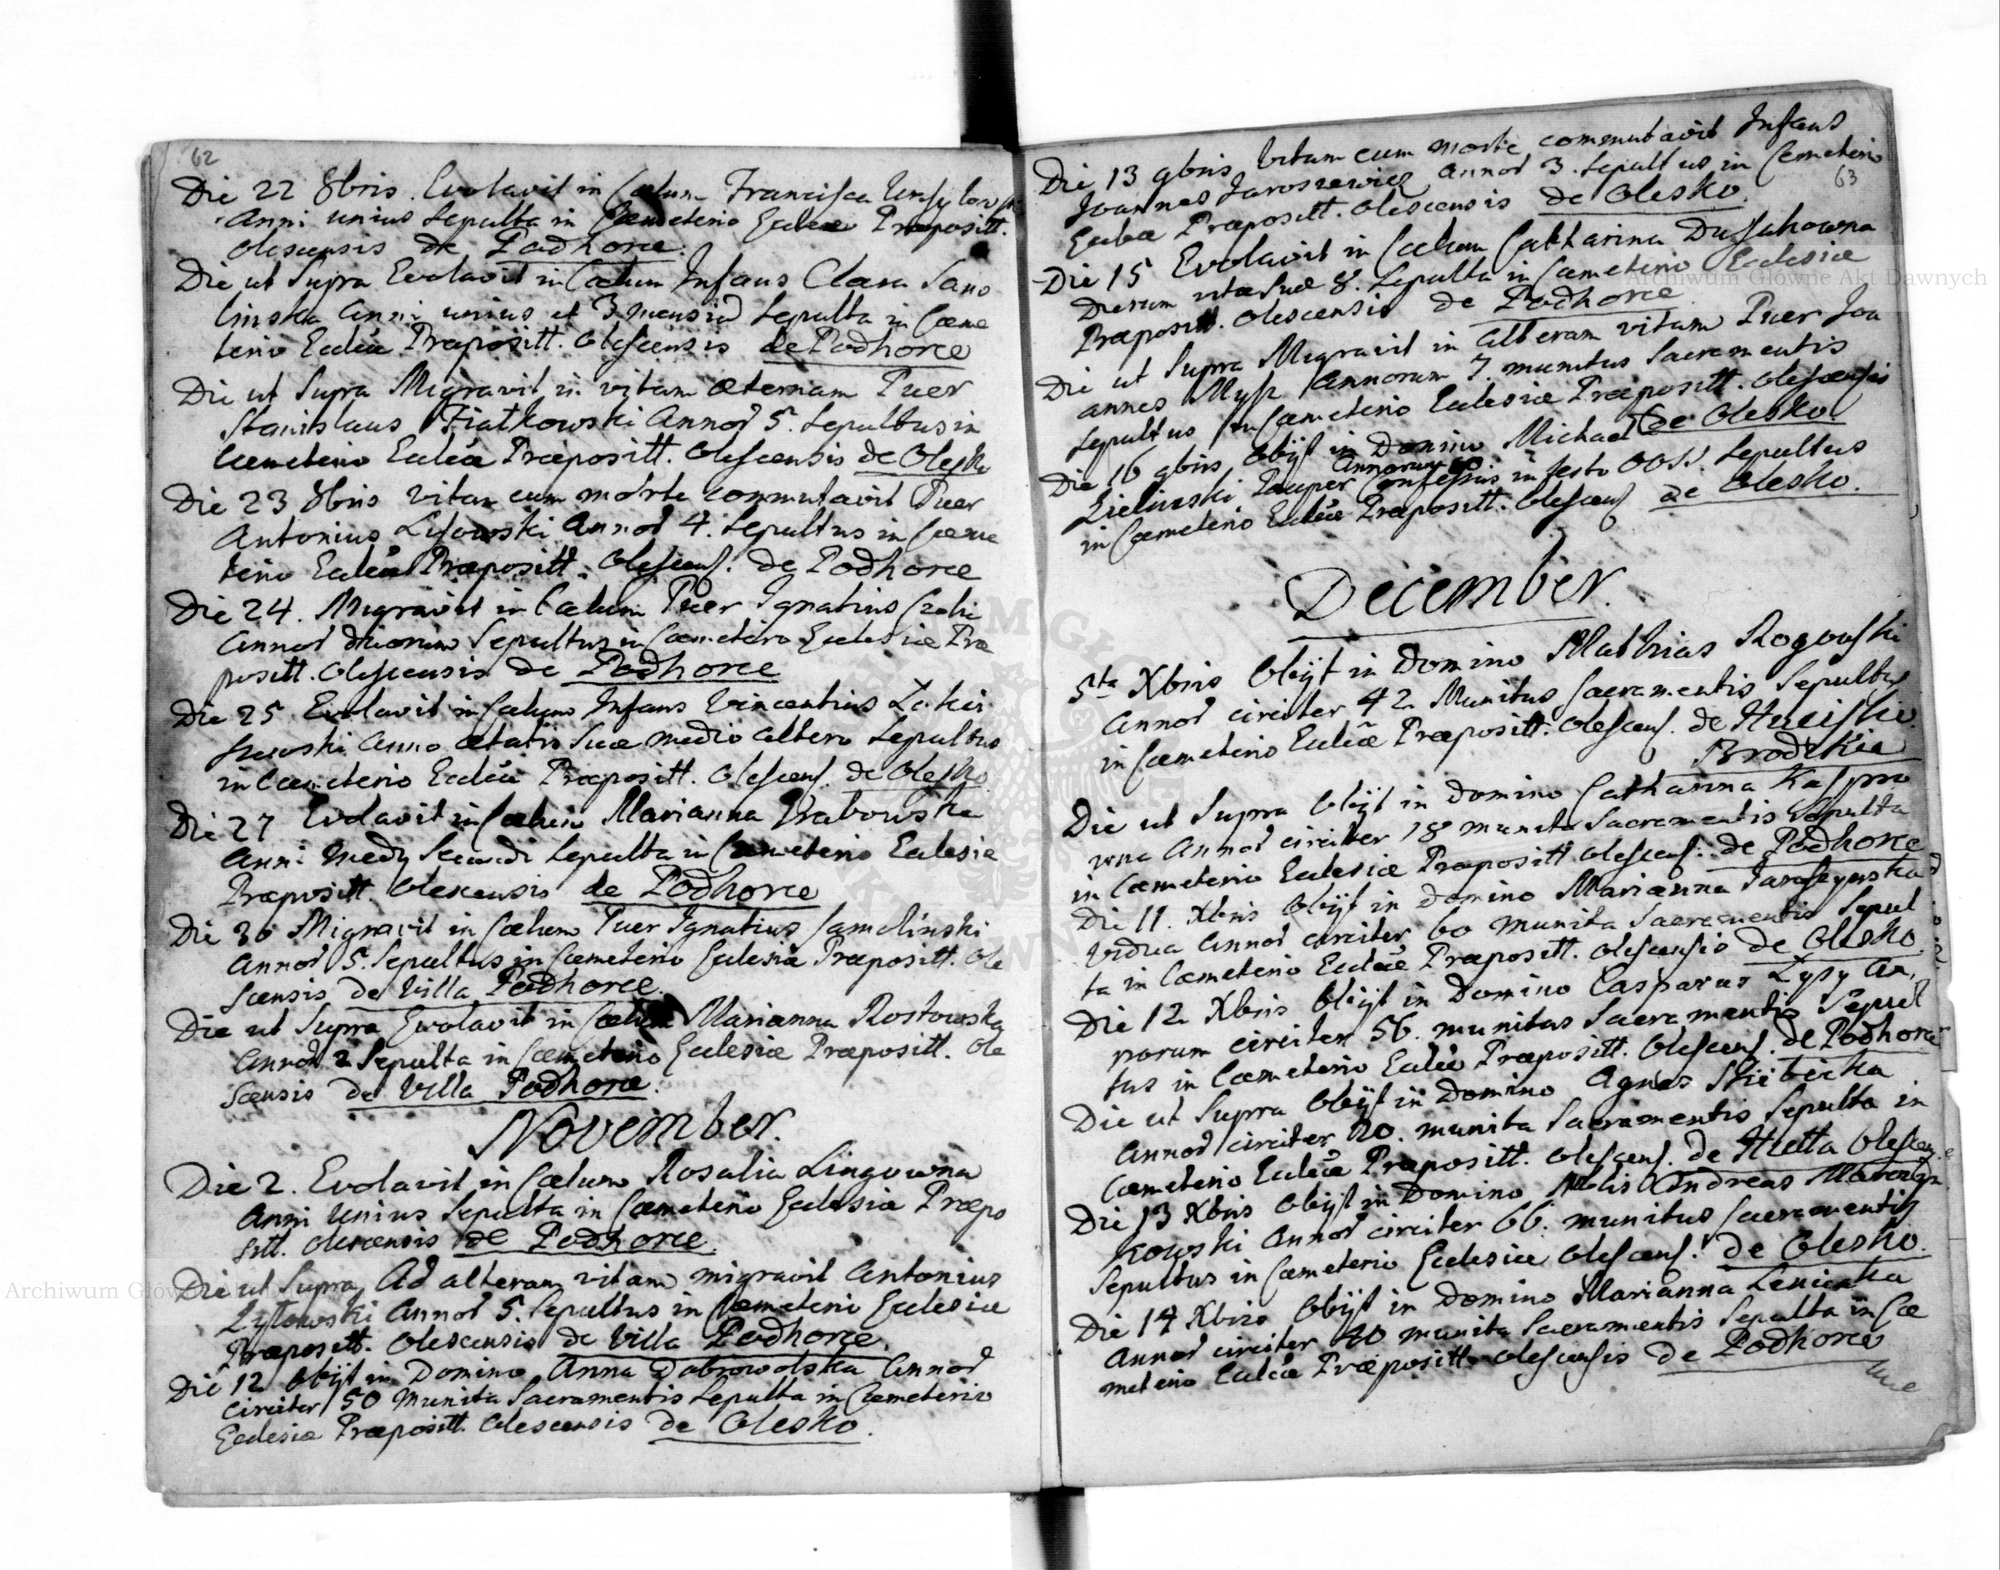 62
Die 22 8bris. Evolavit in Cælum Francisca
Anni unius Sepulta in Cæmeterio Eccleæ Præpositt.
Olescensis de Podhorce
Die ut Supra Evolavit in Cælum Infans Clara Sano
linska Anni unius et 3 mensiū Sepulta in Cæme
terio Eccleæ Præpositt. Olescensis de Podhorce
Die ut Supra Migravit in vitam æternam Puer
Stanislaus Fiatkowski Annor 5. Sepultus in
Cæmeterio Eccleæ Præpositt. Olescensis de Olesko
Die 23 8bris vitam cum morte commutavit Puer
Antonius Lysowski Annor 4. Sepultus in Cæme
terio Eccleæ Præpositt. Olescens. de Podhorce
Die 24. Migravit in Cælum Puer Ignatius
Annor duorum Sepultus in Cæmeterio Ecclesiæ Præ
positt. Olescensis de Podhorce
Die 25 Evolavit in Cælum Infans Vincentius
Anno ætatis Suæ medio altero Sepultus
in Cæmeterio Eccleæ Præpositt. Olescens. de Olesko
Die 27 Evolavit in Cælum Marianna Grabowska
Anni Medy Secundi Sepulta in Cæmeterio Eclesiæ
Præpositt. Olescensis de Podhorce
Die 30 Migravit in Cælum Puer Ignatius Samolinski
Annor 5. Sepultus in Cæmeterio Eclesiæ Præpositt. Ole
scensis de Villa Podhorce.
Die ut Supra Evolavit in Cælum Marianna Rostowska
Annor 2 Sepulta in Cæmeterio Ecclesiæ Præpositt. Ole
scensis de Villa Podhorce.
November.
Die 2. Evolavit in Cælum Rosalia Lingowna
Anni Unius Sepulta in Cæmeterio Ecclesiæ Præpo
sitt. Olescensis de Podhorce.
Die ut Supra Ad alteram vitam migravit Antonius
Annor 5. Sepultus in Cæmeterio Ecclesiæ
Præpositt. Olescensis de Villa Podhorce.
Die 12 Obijt in Domino Anna Dobrowolska Annor
circiter 50 Munita Sacramentis Sepulta in Cæmeterio
Ecclesiæ Præpositt. Olescensis de Olesko.
63
Die 13 9bris Vitam cum morte commutavit Infans
Joannes Jaroszewicz Annor 3. Sepultus in Cemeterio
Eccleæ Præpositt. Olescensis de Olesko.
Die 15 Evolavit in Cælum Catharina
Dierum vitæ Suæ 8. Sepulta in Cæmeterio Ecclesiæ
Præpositt. Olescensis de Podhorce
Die ut Supra Migravit in alteram vitam Puer Joa
annes Annorum 7 munitus Sacramentis
Sepultus in Cæmeterio Ecclesiæ Præpositt. Olescensis
de Olesko.
Die 16 9bris Obijt in Domino Michael
Zielinski Pauper Annorum Confessus in festo Sepultus
in Cæmeterio Eccleæ Præpositt. Olescens de Olesko.
December.
5ta Xbris Obijt in Domino Mathias Rogowski
Annor circiter 42 Munitus Sacramentis Sepultus
in Cæmeterio Eccleæ Præpositt. Olescens. de Huciska
Brodzkie
Die ut Supra Obijt in Domino Catharina Kaspro
wna Annor circiter 18 munita Sacramentis Sepulta
in Cæmeterio Ecclesiæ Præpositt Olescens. de Podhorce
Die 11. Xbris Obijt in Domino Marianna
Vidua Annor circiter 60 Munita Sacramentis Sepul
ta in Cæmeterio Eccleæ Præpositt. Olescensis de Olesko.
Die 12 Xbris Obijt in Domino Casparus Lysy An,
norum circiter 56. munitus Sacramentis Sepul
tus in Cæmeterio Eccleæ Præpositt. Olescens. de Podhorce
Die ut Supra Obijt in Domino Agnes
Annor circiter 20. munita Sacramentis Sepulta in
Cæmeterio Eccleæ Præpositt. Olescens. de Hutta
Die 13 Xbris Obijt in Domino Nobilis Andreas
kowski Annor circiter 66. munitus Sacramentis
Sepultus in Cæmeterio Ecclesiæ Olescens. de Olesko.
Die 14 Xbris Obijt in Domino Marianna
Annor circiter 40 munita Sacramentis Sepulta in Cæ
meterio Eccleæ Præpositt. Olescensis de Podhorce
Archiwum Główne Akt Dawnych